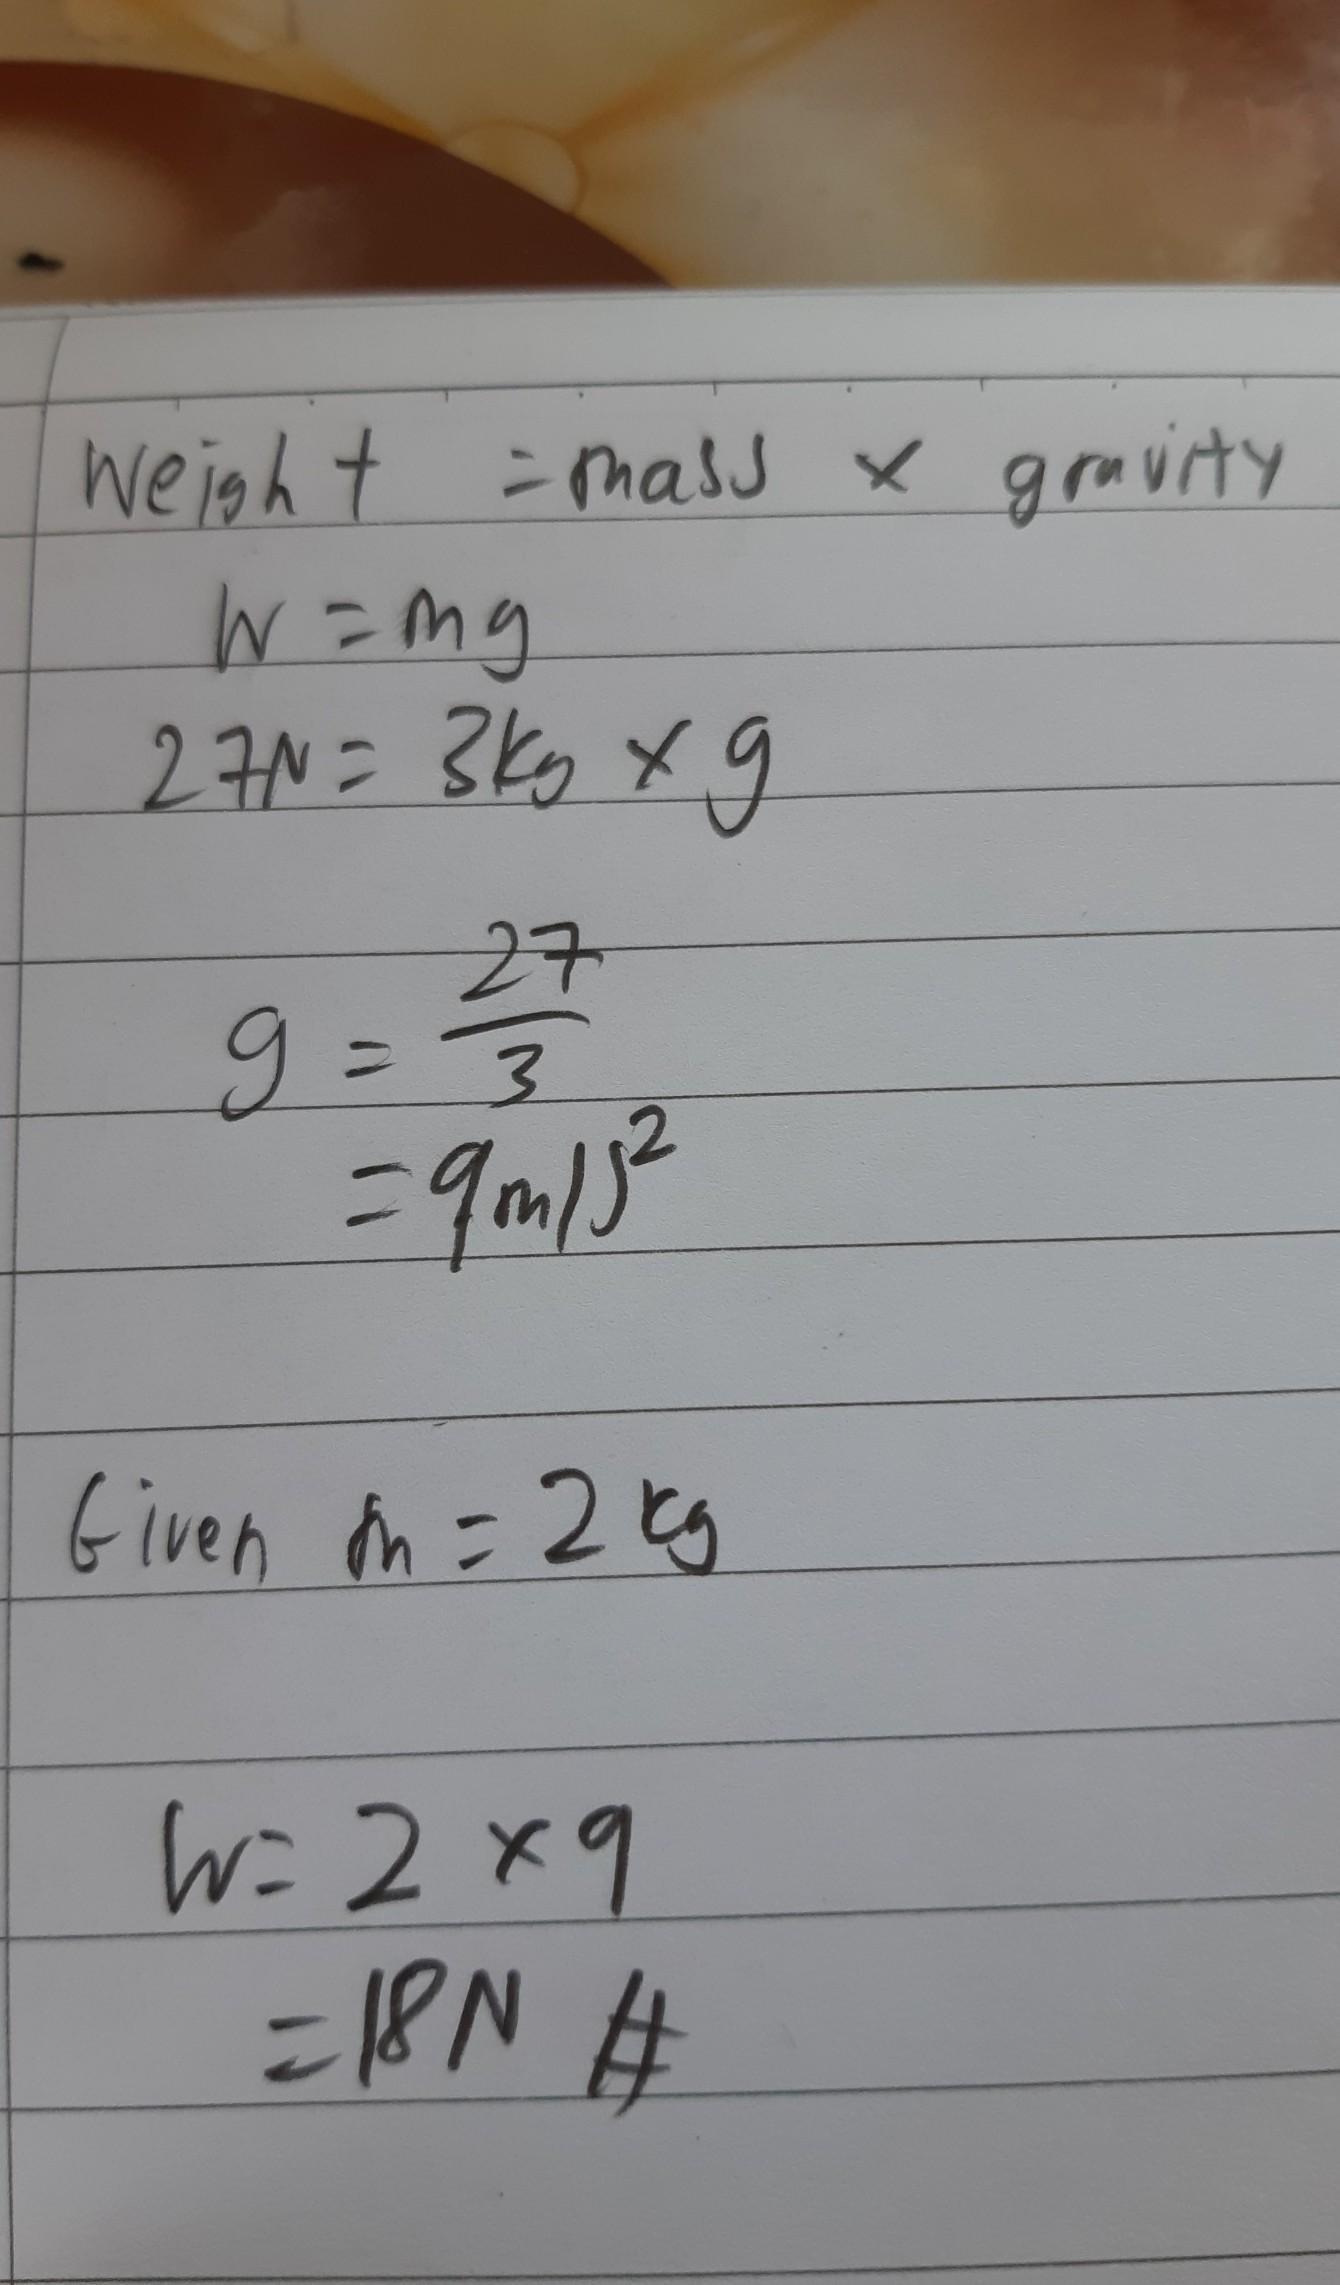 Weight = mass × gravity
W = mg
27N = 3kg × g
g = 27/3
= 9m/s²
Given m = 2 kg
W = 2 × 9
= 18N #